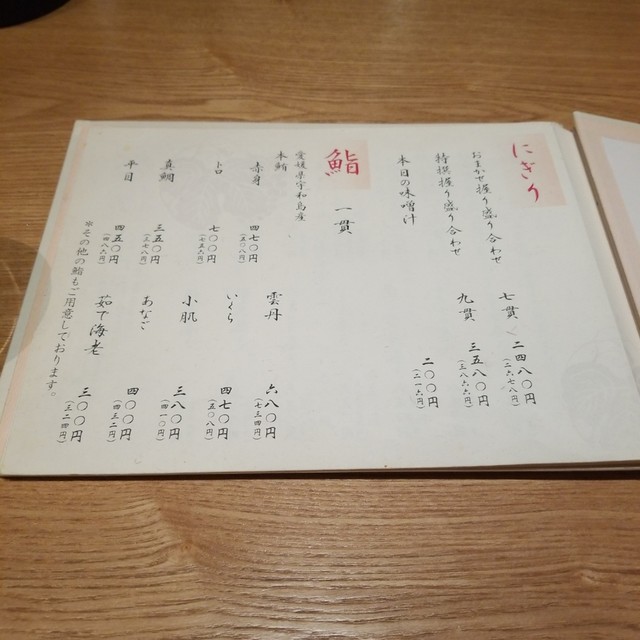 にぎり
おまかせ握り盛り合わせ 七貫 二四八〇円
(二六七八円)
特撰握り盛り合わせ 九貫 三五八〇円
(三八六六円)
本日の味噌汁 二〇〇円
(二一六円)
鮨 一貫
愛媛県宇和島産
本鮪
赤身 四七〇円
(五〇八円)
トロ 七〇〇円
(七五六円)
真鯛 三五〇円
(三七八円)
平目 四五〇円
(四八六円)
雲丹 六八〇円
(七三四円)
いくら 四七〇円
(五〇八円)
小肌 三八〇円
(四一〇円)
あなご 四〇〇円
(四三二円)
茹で海老 三〇〇円
(三二四円)
※その他の鮨もご用意しております。